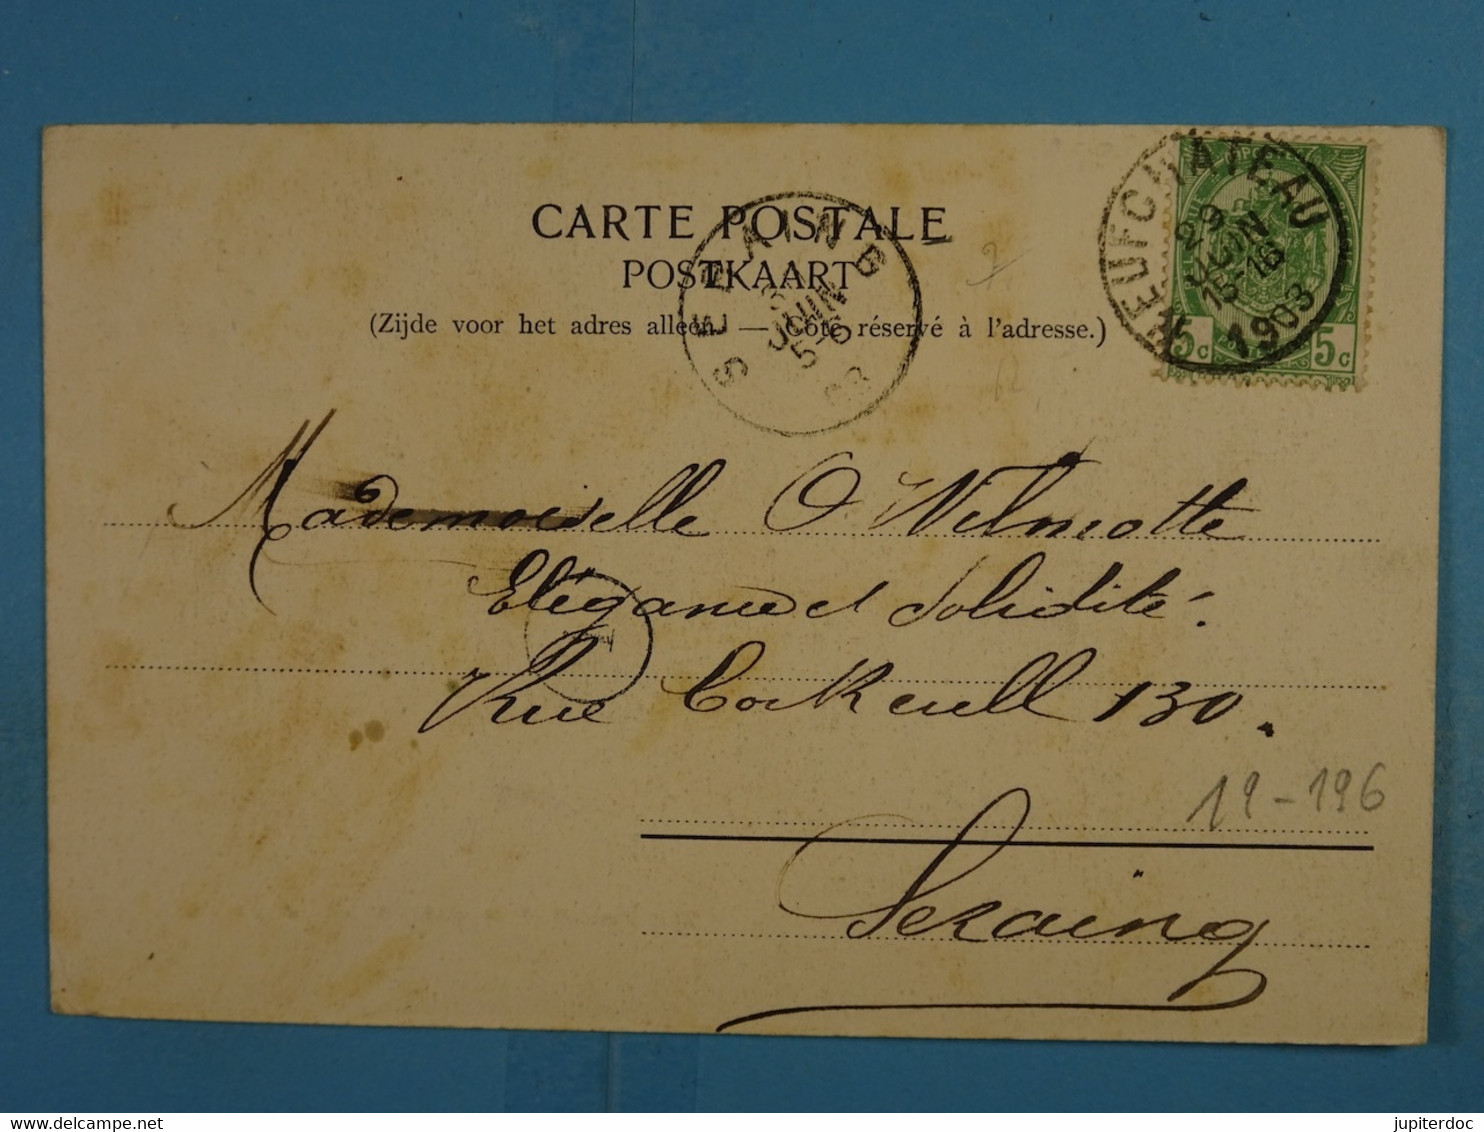 CARTE POSTALE
POSTKAART
(Zijde voor het adres alleen. — Côté réservé à l'adresse.)
NEUFCHATEAU
29
JUIN
15-16
1903
5c 5c
SERAING
JUIN
5-6
03
Mademoiselle O Wilmotte
Elégance et Solidité.
Rue Cockerill 130.
19-196
Seraing
jupiterdoc
delcampe.net